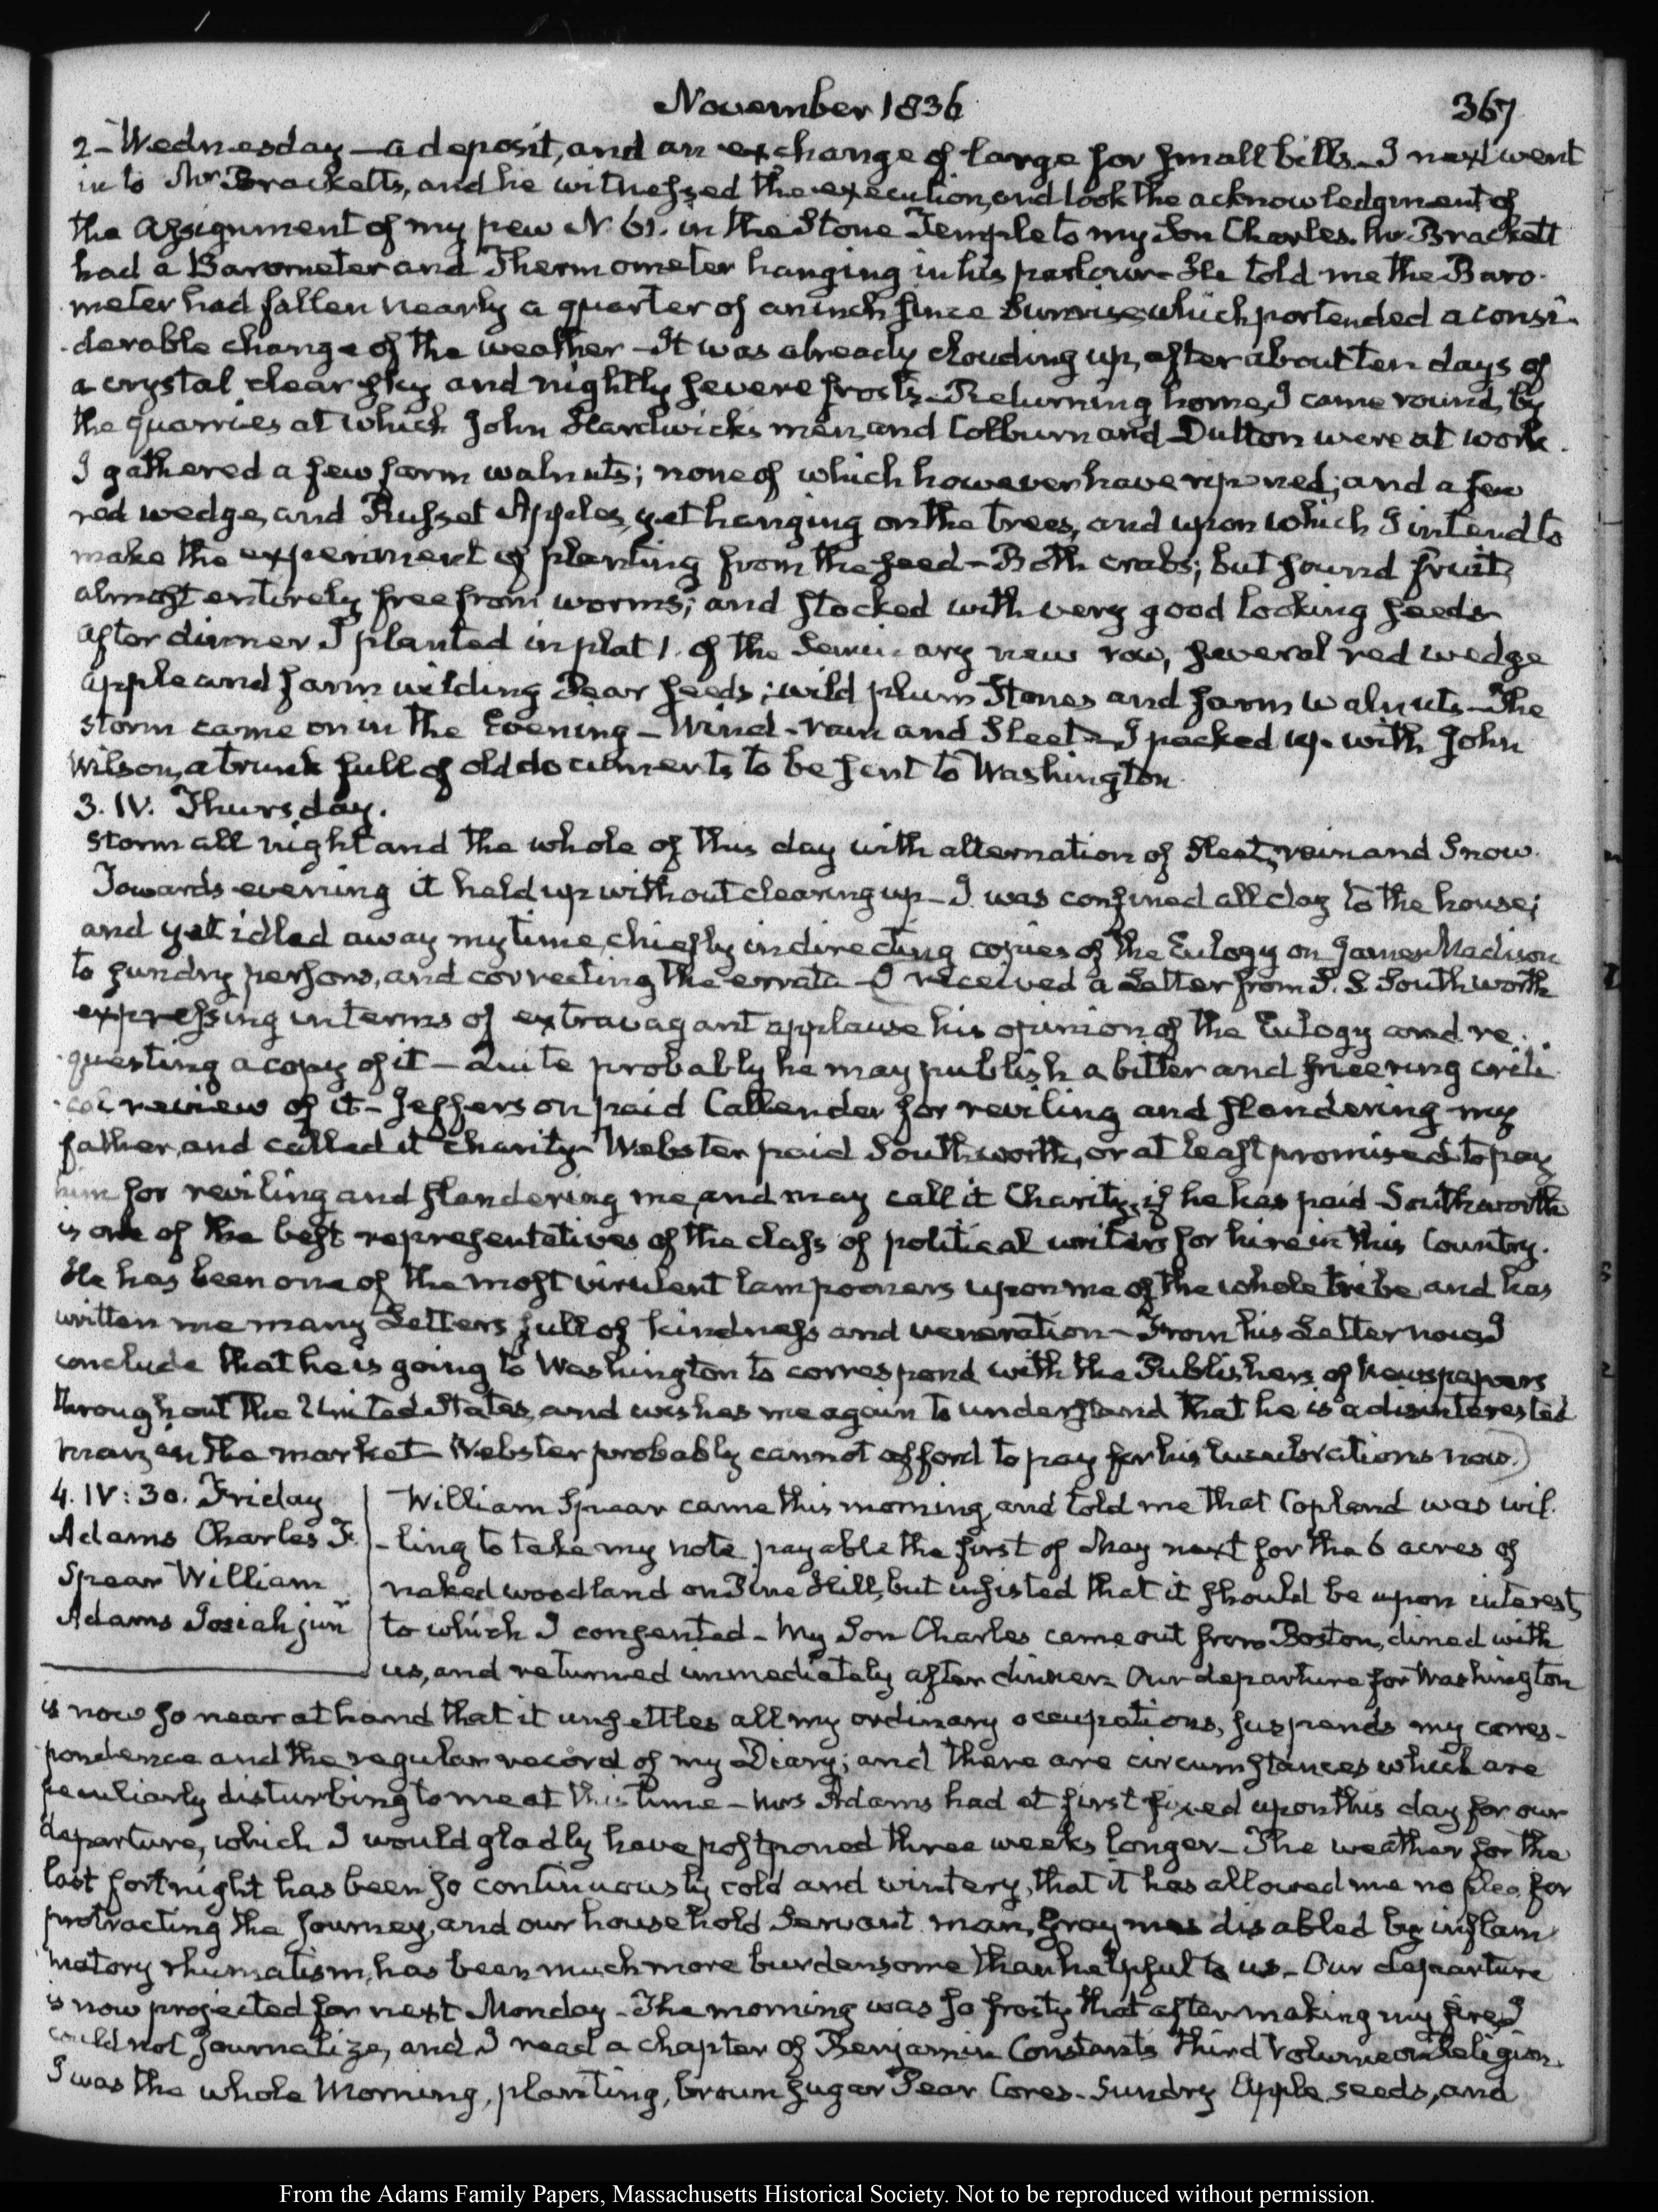 November 1836
367
2 - Wednesday - a deposit, and an exchange of large for small bills - I next went
in to Mr Bracketts, and he witnessed the execution, and took the acknowledgment of
the assignment of my pew N. 61. in the Stone Temple to my Son Charles. Mr Brackett
had a Barometer and Thermometer hanging in his parlour - He told me the Baro-
meter had fallen nearly a quarter of an inch since Sunrise which portended a consi-
-derable change of the weather - It was already clouding up, after about ten days of
a crystal clear sky and nightly severe frosts - Returning home, I came round, by
the quarries at which John Hardwick's men, and Colburn and Dutton were at work.
I gathered a few farm walnuts; none of which however have ripened; and a few
red wedge, and Russet Apples, yet hanging on the trees, and upon which I intend to
make the experiment of planting from the seed - Both crabs; but sound fruit,
almost entirely free from worms; and stocked with very good looking seeds -
After dinner I planted in plat 1. of the Seminary new row, several red wedge
apple and farm wilding Pear seeds; wild plum Stones and farm walnuts - The
storm came on in the Evening - Wind - rain and Sleet - I packed up with John
Wilson, a trunk full of old documents, to be sent to Washington
3. IV. Thursday.
Storm all night and the whole of this day with alternation of Sleet, rain and Snow.
Towards evening it held up without clearing up - I was confined all day to the house;
and yet idled away my time, chiefly in directing copies of the Eulogy on James Madison
to sundry persons, and correcting the errata - I received a Letter from S. S. Southworth
expressing in terms of extravagant applause his opinion of the Eulogy and re-
-questing a copy of it - Quite probably he may publish a bitter and sneering criti-
-cal review of it - Jefferson paid Callender for reviling and slandering my
father, and called it charity - Webster paid Southworth, or at least promised to pay
him for reviling and slandering me, and may call it Charity, if he has paid - Southworth
is one of the best representatives of the class of political writers for hire in this Country.
He has been one of the most virulent lampooners upon me of the whole tribe and has
written me many Letters full of kindness and veneration - From his Letter now, I
conclude that he is going to Washington to correspond with the Publishers of Newspapers
throughout the United States, and wishes me again to understand that he is a disinterested
man, in the market - Webster probably cannot afford to pay for his lucubrations now.)
4. IV: 30. Friday
Adams Charles F.
Spear William
Adams Josiah junr
William Spear came this morning, and told me that Copland was wil-
-ling to take my note payable the first of May next for the 6 acres of
naked woodland on Pine Hill, but insisted that it should be upon interest,
to which I consented - My Son Charles came out from Boston, dined with
us, and returned immediately after dinner. Our departure for Washington
is now so near at hand that it unsettles all my ordinary occupations, suspends my corres-
pondence and the regular record of my Diary; and there are circumstances which are
peculiarly disturbing to me at this time - Mrs Adams had at first fixed upon this day for our
departure, which I would gladly have postponed three weeks longer - The weather for the
last fortnight has been so continuously cold and wintery, that it has allowed me no plea for
protracting the journey, and our household Servant man, Gray disabled by inflam-
matory rhumatism, has been much more burdensome than helpful to us - Our departure
is now projected for next Monday - The morning was so frosty that after making my fire, I
could not Journalize, and I read a chapter of Benjamin Constant's third Volume on Religion.
I was the whole Morning, planting, brown sugar Pear Cores - Sundry Apple seeds, and
From the Adams Family Papers, Massachusetts Historical Society. Not to be reproduced without permission.